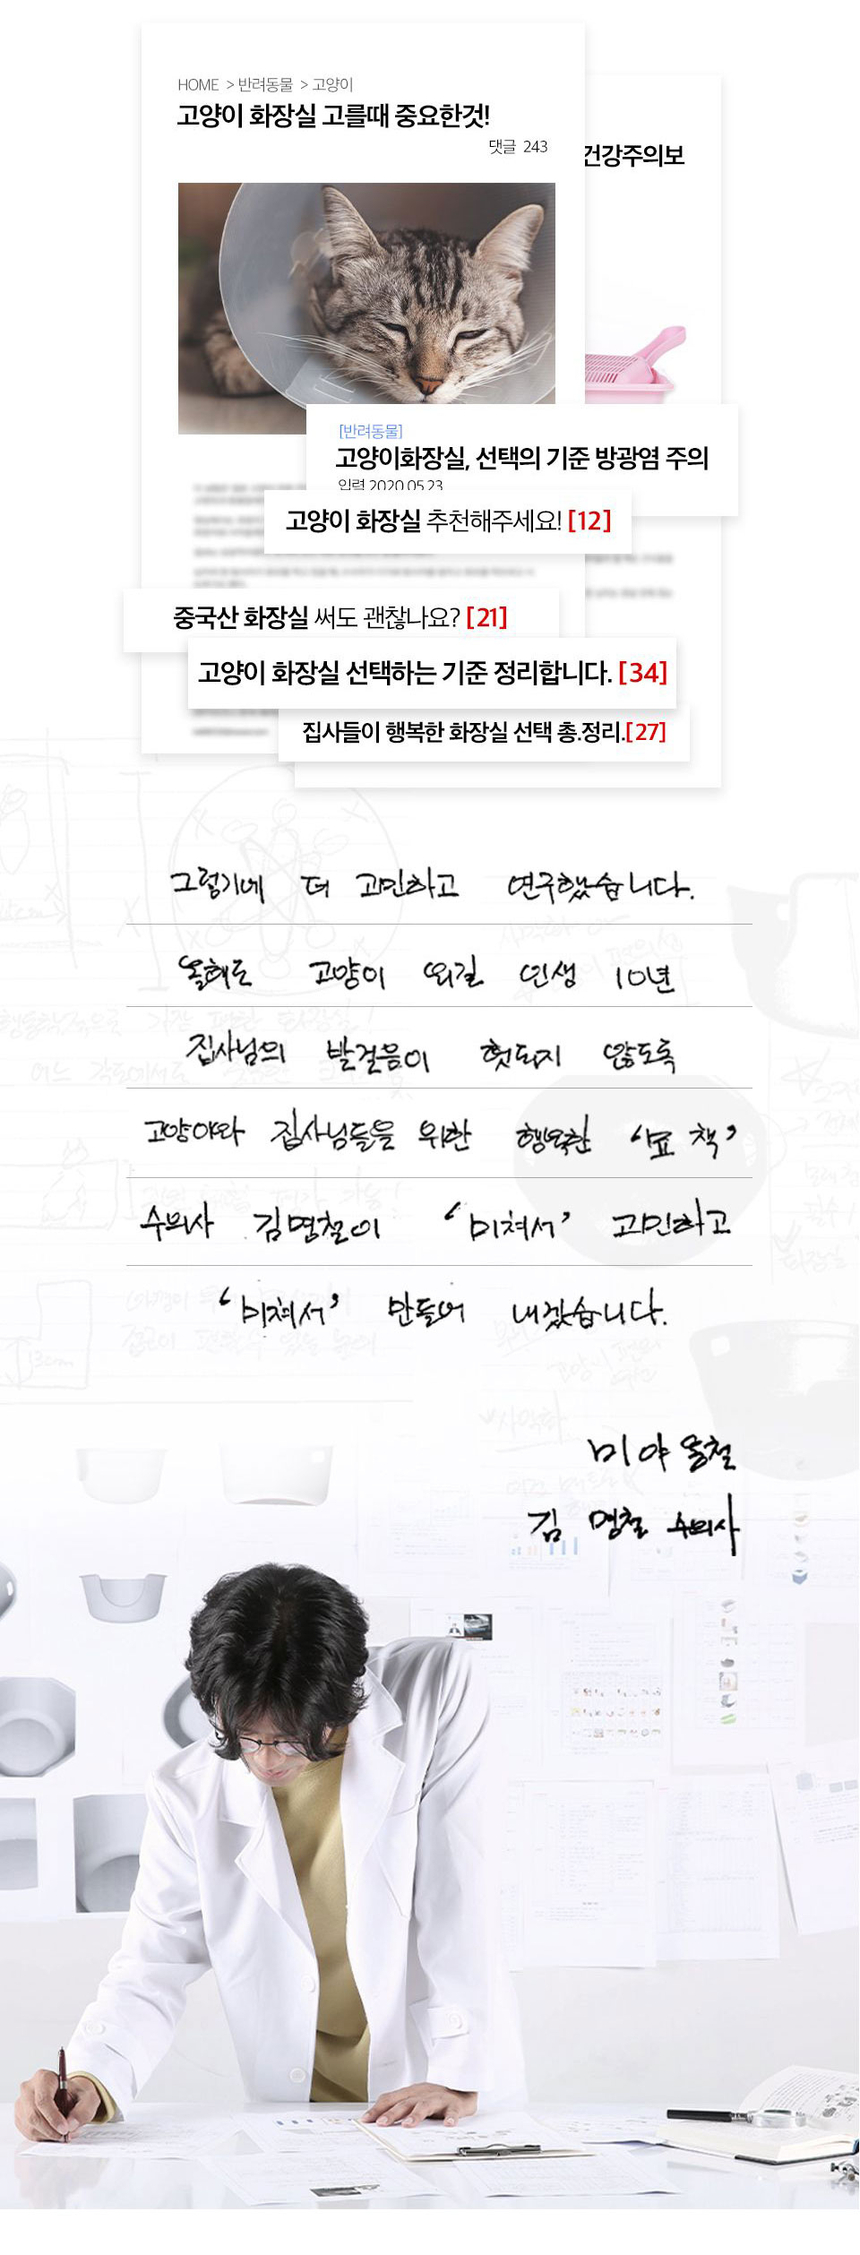 HOME > 반려동물 > 고양이
고양이 화장실 고를때 중요한것!
댓글 243
건강주의보
[반려동물]
고양이화장실, 선택의 기준 방광염 주의
입력 2020.05.23
고양이 화장실 추천해주세요! [12]
중국산 화장실 써도 괜찮나요? [21]
고양이 화장실 선택하는 기준 정리합니다. [34]
집사들이 행복한 화장실 선택 총.정리.[27]
그렇기에 더 고민하고 연구했습니다.
올해도 고양이 외길 인생 10년
집사님의 발걸음이 헛되지 않도록
고양이와 집사님들을 위한 행복한 '묘책'
수의사 김명철이 '미쳐서' 고민하고
'미쳐서' 만들어 내겠습니다.
미야옹철
김명철 수의사